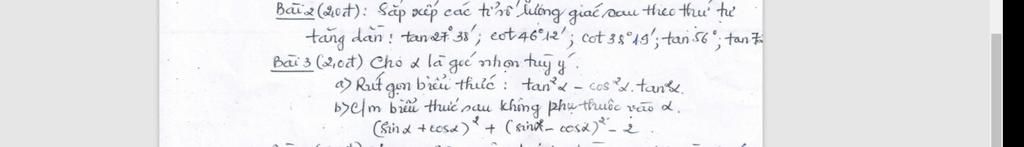 Bài 2 (2,0đ): Sắp xếp các tỉ số lượng giác sau theo thứ tự
tăng dần: tan 27°38'; cot 46°12'; cot 38°19'; tan 56°; tan 7
Bài 3 (2,0đ) Cho α là góc nhọn tuỳ ý.
a) Rút gọn biểu thức: tan²α - cos²α.tan²α.
b) C/m biểu thức sau không phụ thuộc vào α.
(sinα + cosα)² + (sinα - cosα)² - 2